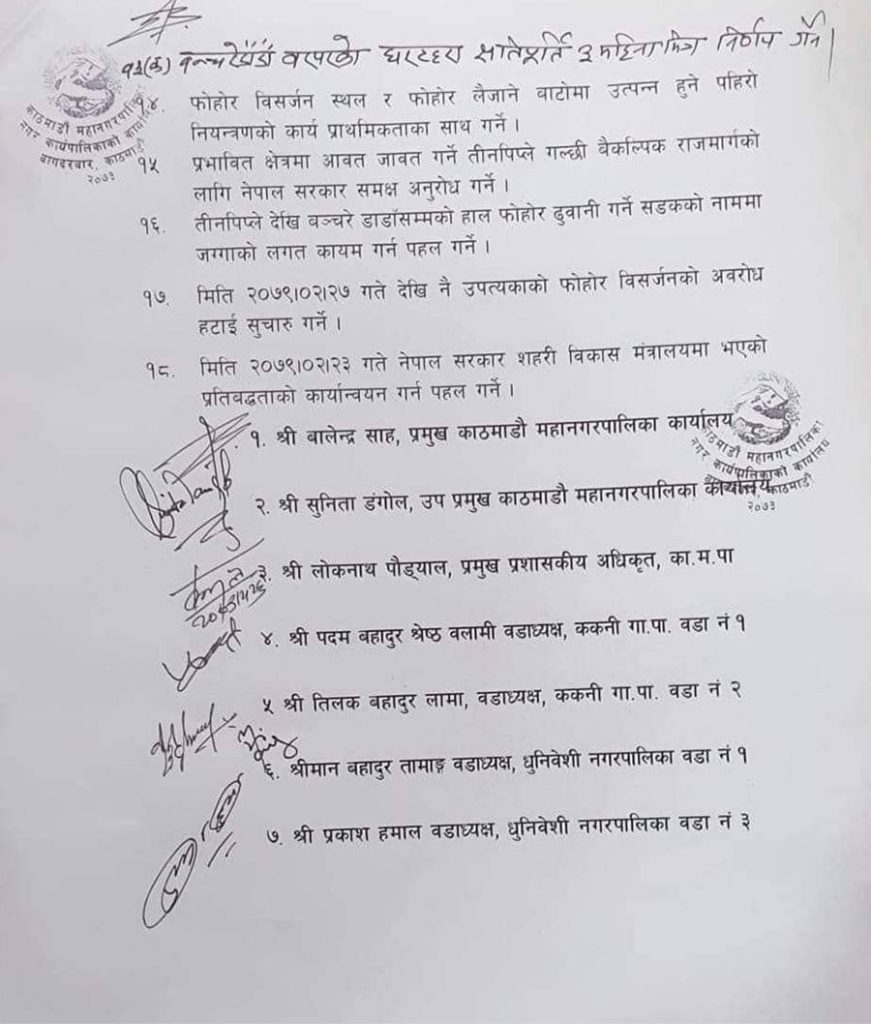 १३(क) बन्चरेडाँडा वरपरको घरटहरा क्षतिपूर्ति ३ महिना भित्र निर्णय गर्ने।
१४. फोहोर विसर्जन स्थल र फोहोर लैजाने बाटोमा उत्पन्न हुने पहिरो
नियन्त्रणको कार्य प्राथमिकताका साथ गर्ने ।
१५ प्रभावित क्षेत्रमा आवत जावत गर्ने तीनपिप्ले गल्छी वैकल्पिक राजमार्गको
लागि नेपाल सरकार समक्ष अनुरोध गर्ने ।
१६. तीनपिप्ले देखि बञ्चरे डाडाँसम्मको हाल फोहोर ढुवानी गर्ने सडकको नाममा
जग्गाको लगत कायम गर्न पहल गर्ने ।
१७. मिति २०७९।०२।२७ गते देखि नै उपत्यकाको फोहोर विसर्जनको अवरोध
हटाई सुचारु गर्ने ।
१८. मिति २०७९।०२।२३ गते नेपाल सरकार शहरी विकास मंत्रालयमा भएको
प्रतिबद्धताको कार्यान्वयन गर्न पहल गर्ने ।
१. श्री बालेन्द्र साह, प्रमुख काठमाडौ महानगरपालिका कार्यालय
२. श्री सुनिता डंगोल, उप प्रमुख काठमाडौ महानगरपालिका कार्यालय
३. श्री लोकनाथ पौड्याल, प्रमुख प्रशासकीय अधिकृत, का.म.पा
४. श्री पदम बहादुर श्रेष्ठ वलामी वडाध्यक्ष, ककनी गा.पा. वडा नं १
५ श्री तिलक बहादुर लामा, वडाध्यक्ष, ककनी गा.पा. वडा नं २
६. श्रीमान बहादुर तामाङ्ग वडाध्यक्ष, धुनिवेशी नगरपालिका वडा नं १
७. श्री प्रकाश हमाल वडाध्यक्ष, धुनिवेशी नगरपालिका वडा नं ३
काठमाडौं महानगरपालिका
नगर कार्यपालिकाको कार्यालय
बागदरबार, काठमाडौं
२०७३
काठमाडौं महानगरपालिका
नगर कार्यपालिकाको कार्यालय
काठमाडौं
२०७३